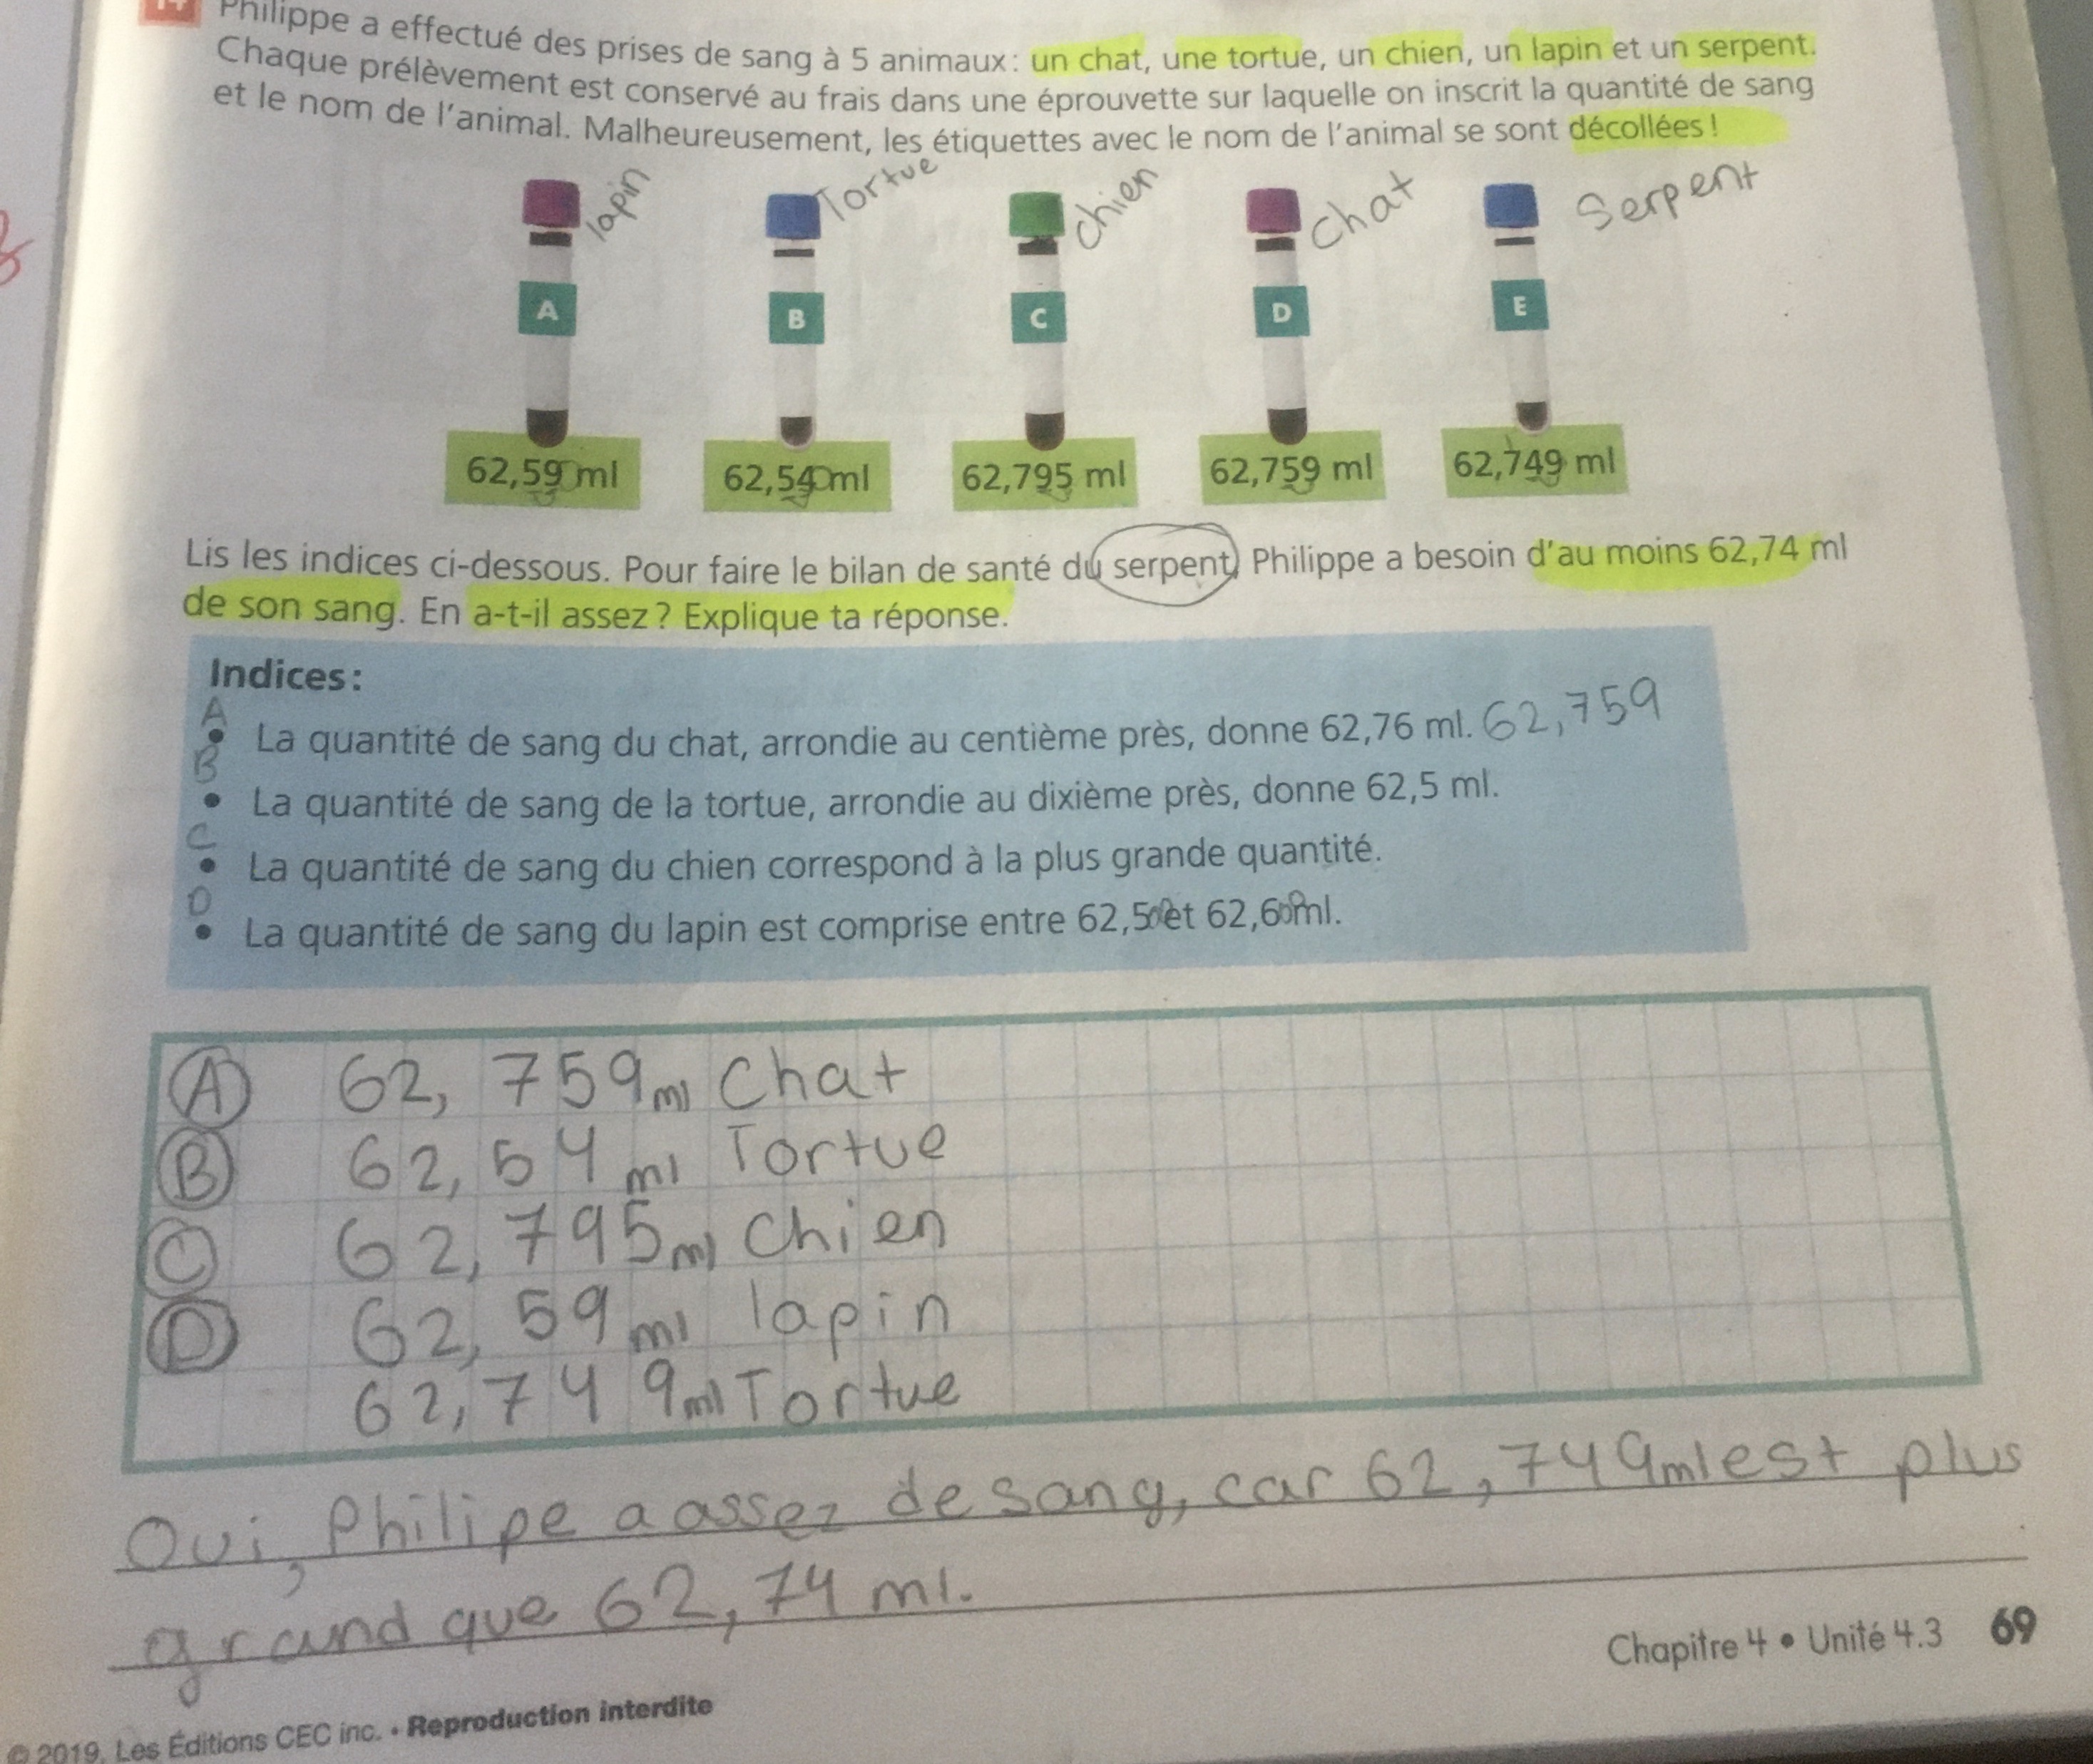 Philippe a effectué des prises de sang à 5 animaux : un chat, une tortue, un chien, un lapin et un serpent.
Chaque prélèvement est conservé au frais dans une éprouvette sur laquelle on inscrit la quantité de sang
et le nom de l'animal. Malheureusement, les étiquettes avec le nom de l'animal se sont décollées !
lapin Tortue chien chat Serpent
A B C D E
62,590 ml 62,540 ml 62,795 ml 62,759 ml 62,749 ml
Lis les indices ci-dessous. Pour faire le bilan de santé du serpent, Philippe a besoin d'au moins 62,74 ml
de son sang. En a-t-il assez ? Explique ta réponse.
Indices :
A • La quantité de sang du chat, arrondie au centième près, donne 62,76 ml. 62,759
B • La quantité de sang de la tortue, arrondie au dixième près, donne 62,5 ml.
C • La quantité de sang du chien correspond à la plus grande quantité.
D • La quantité de sang du lapin est comprise entre 62,500 et 62,600 ml.
A 62,759 ml Chat
B 62,54 ml Tortue
C 62,795 ml Chien
D 62,59 ml lapin
62,749 ml Tortue
Oui, Philipe a assez de sang, car 62,749 ml est plus
grand que 62,74 ml.
Chapitre 4 • Unité 4.3 69
© 2019, Les Éditions CEC inc. • Reproduction interdite